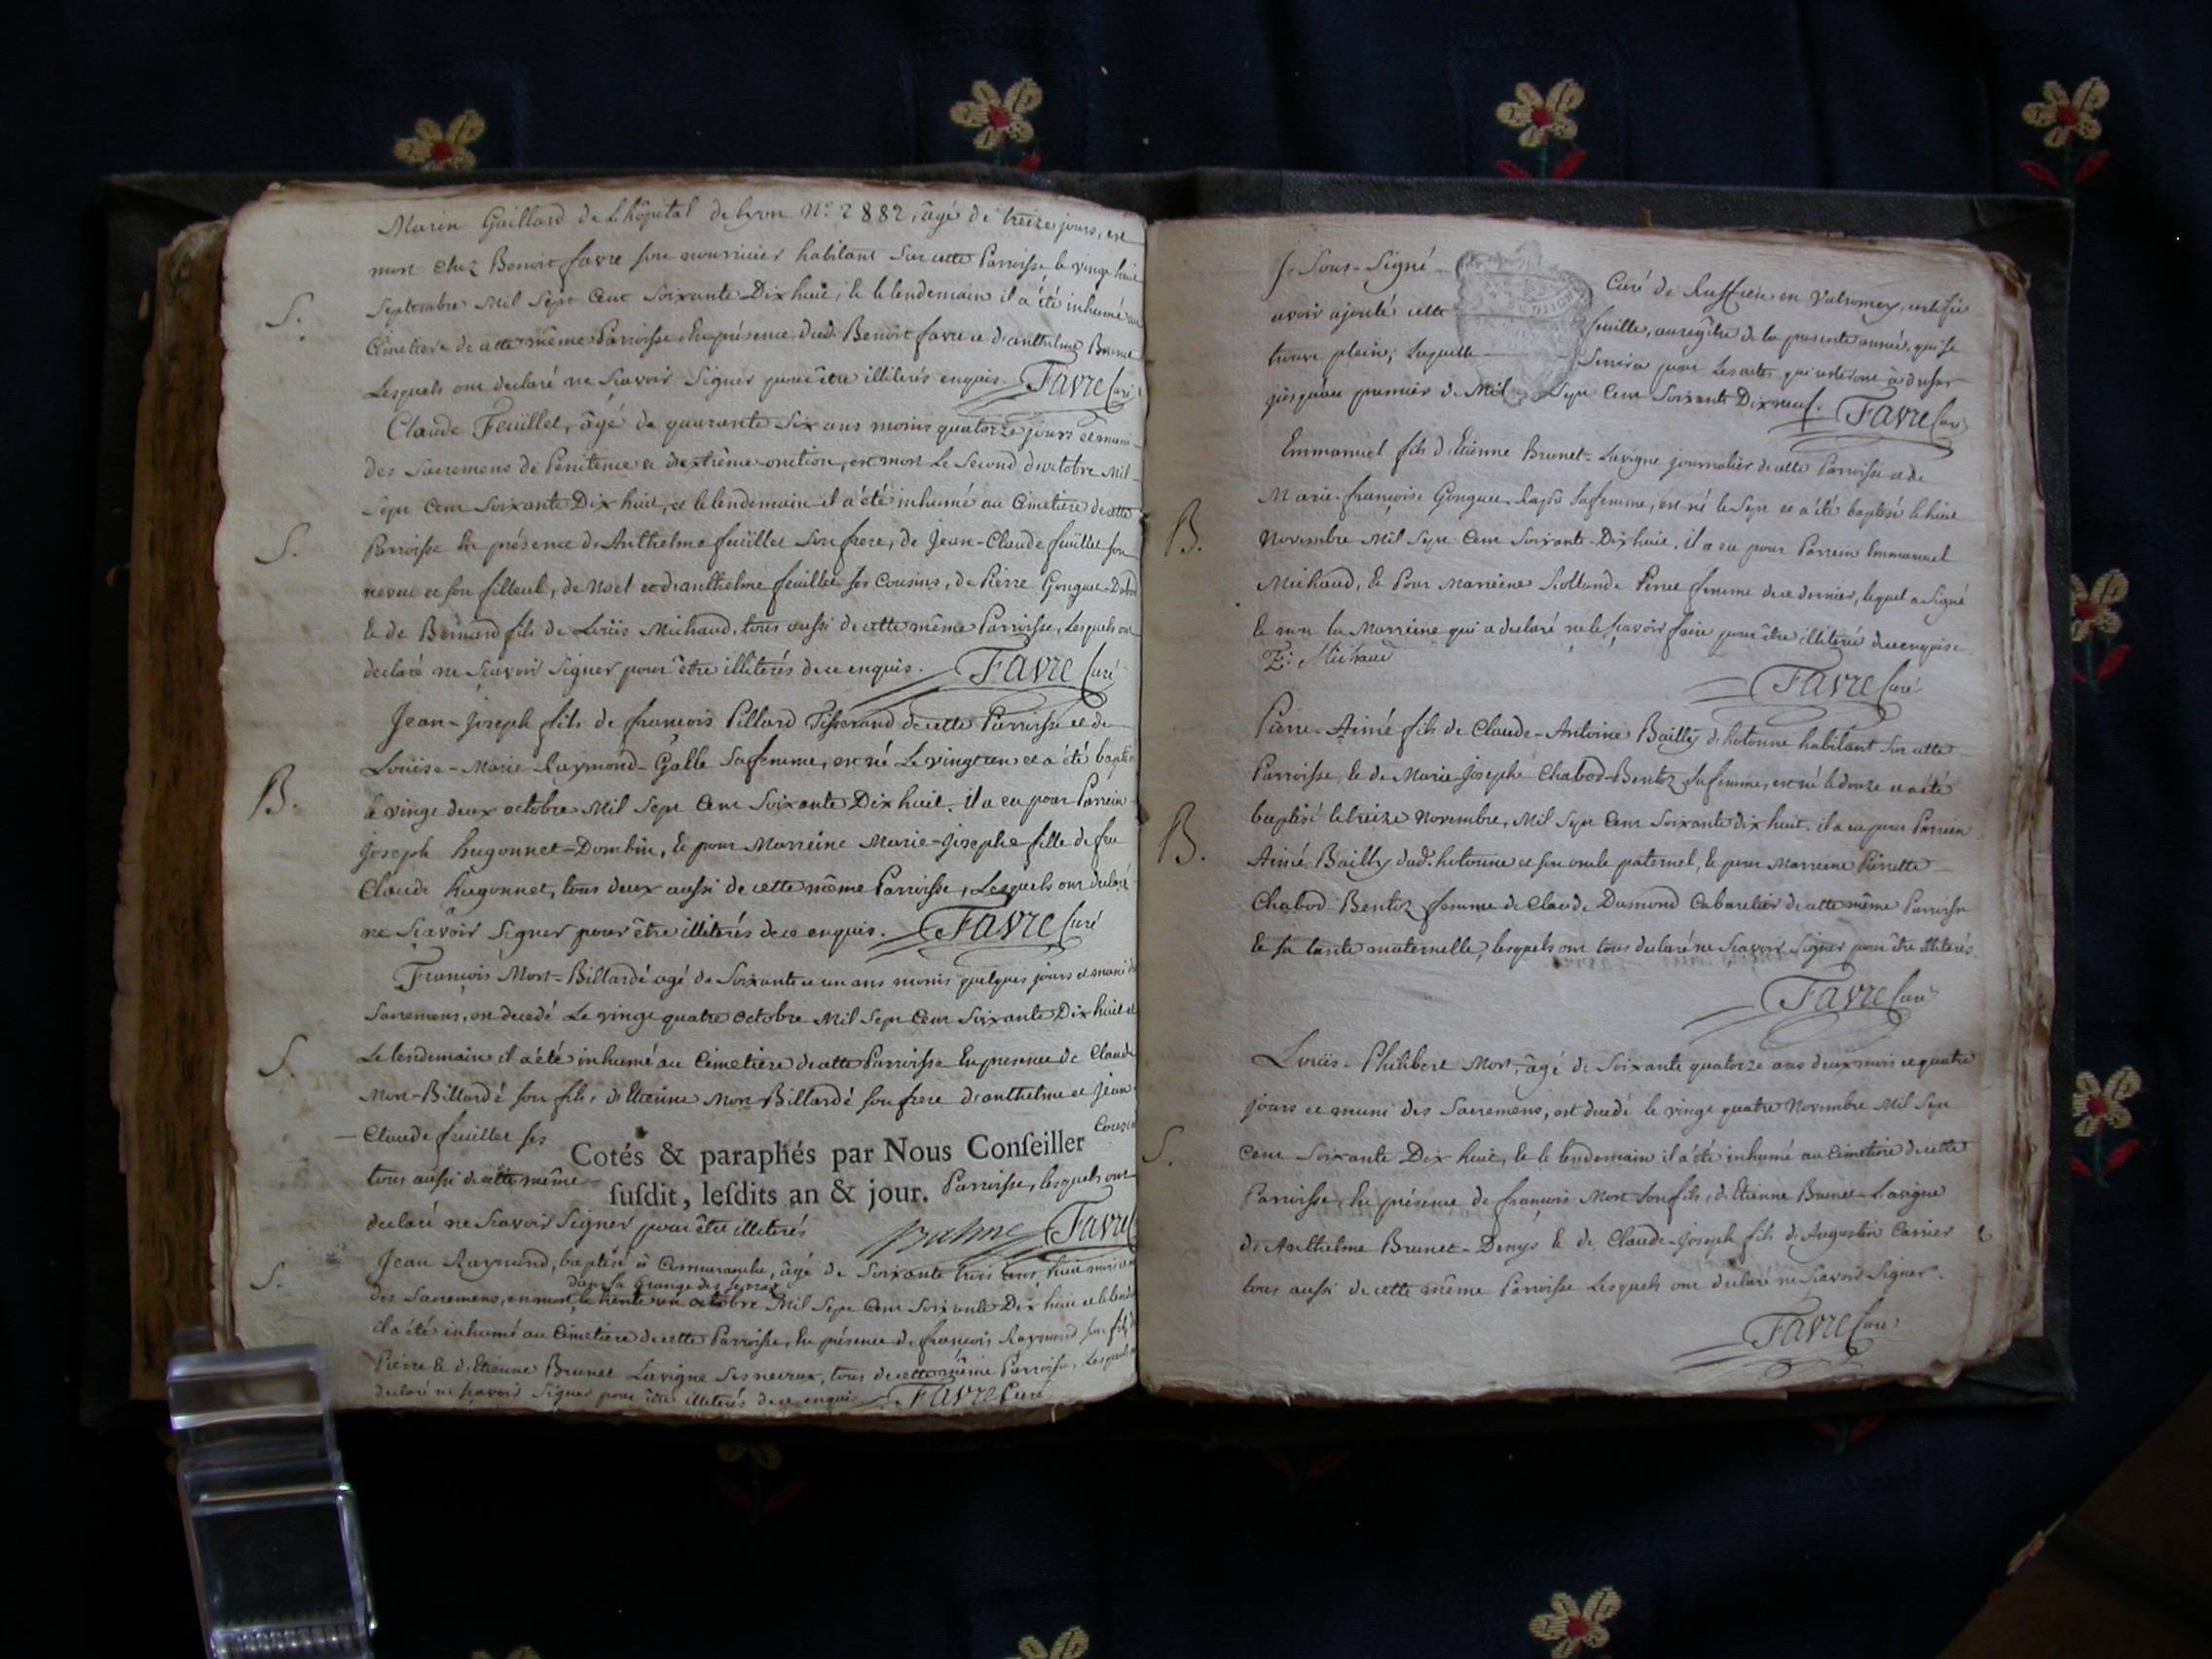 Marin Gaillard de L'hôpital de Lyon N.º 2882, âgé de treize jours, est
mort chez Benoit favre son nourricier habitant sur cette Parroisse le vingt huit
S. Septembre Mil Sept Cent Soixante Dix huit, & le lendemain il a été inhumé au
Cimetiere de cette même Parroisse En présence dud. Benoit favre et d'anthelme Brunet
Lesquels ont declaré ne Sçavoir Signer pour être illiterés enquis. Favre Curé
Claude Feüillet, âgé de quarante Six ans moins quatorze jours et muni
des Sacremens de Penitence et d'extrême-onction, est mort Le Second d'octobre Mil
Sept Cent Soixante Dix huit, et le lendemain il a été inhumé au Cimetiere de cette
S. Parroisse En présence d'Anthelme feüillet Son frere, de Jean-Claude feüillet son
neveu et son filleul, de Noel et d'anthelme feuillet ses Cousins, de Pierre Gonguet-
& de Bernard fils de Loüis Michaud, tous aussi de cette même Parroisse, Lesquels ont
declaré ne Sçavoir Signer pour être illiterés de ce enquis. Favre Curé
Jean-Joseph fils de françois Pillard Tisserand de cette Parroisse et de
Loüise-Marie Raymond-Galle Sa femme, est né Le vingt un et a été baptisé
B. le vingt deux octobre Mil Sept Cent Soixante Dix huit. il a eu pour Parrein
Joseph hugonnet-Dombin, & pour Marreine Marie-Josephe fille de feu
Claude hugonnet, tous deux aussi de cette même Parroisse, Lesquels ont declaré
ne Sçavoir Signer pour être illiterés de ce enquis. Favre Curé
François Mort-Billardé agé de Soixante et un ans moins quelques jours et muni des
Sacremens, est decedé Le vingt quatre octobre Mil Sept Cent Soixante Dix huit et
S. Le lendemain il a été inhumé au Cimetiere de cette Parroisse En presence de Claude
Mort-Billardé son fils, d'Etienne Mort-Billardé son frere d'anthelme et Jean
Claude feuillet ses Cousins
Cotés & paraphés par Nous Conseiller
tous aussi de cette même Parroisse, lesquels ont
susdit, lesdits an & jour.
declaré ne Scavoir Signer pour être illiterés Favre
S. Jean Raymond, baptisé à Cormaranche, âgé de Soixante trois ans, huit mois
dans la Grange des
des Sacremens, est mort le trente un octobre Mil Sept Cent Soixante Dix huit et le
il a été inhumé au Cimetiere de cette Parroisse, En présence de françois Raymond son fils
Pierre & d'Etienne Brunet Lavigne Ses neveux, tous de cette même Parroisse, Lesquels
declaré ne sçavoir Signer pour être illiterés de ce enquis Favre Curé
Je Sous-Signé Curé de Ruffieu en Valromey, certifie
avoir ajouté cette feuille, au regître de la presente année, qui se
trouve plein; laquelle Servira pour Les actes qui resteront à dresser
jusqu'au premier de Mil Sept Cent Soixante Dix neuf. Favre Curé
Emmanuel fils d'Etienne Brunet-Lavigne journalier de cette Parroisse et de
Marie-françoise Gonguet- Sa femme, est né le Sept et a été baptisé le huit
B. Novembre Mil Sept Cent Soixante-Dix huit. il a eu pour Parrein Emmanuel
Michaud, & Pour Marreine Rollande Perret femme de ce dernier, lequel a Signé
& non la Marreine qui a declaré ne le sçavoir faire pour être illiterée de ce enquise
E: Michaud
Favre Curé
Pierre-Aimé fils de Claude-Antoine Bailly d'hotonne habitant Sur cette
Parroisse, & de Marie Josephe Chabod-Bentoz Sa femme, est né le douze et a été
baptisé le treize Novembre, Mil Sept Cent Soixante dix huit. il a eu pour Parrein
B. Aimé Bailly dud. hotonne et son oncle paternel, & pour Marreine Pierrette
Chabod Bentoz femme de Claude Dumond Cabaretier de cette même Parroisse
& sa tante maternelle, lesquels ont tous declaré ne Sçavoir Signer pour être illiterés.
Favre Curé
Loüis-Philibert Mort, âgé de Soixante quatorze ans deux mois et quatre
jours et muni des Sacremens, est decedé le vingt quatre Novembre Mil Sept
S. Cent Soixante Dix huit, & le lendemain il a été inhumé au Cimetiere de cette
Parroisse, En présence de françois Mort Son fils, d'Etienne Brunet-Lavigne
d'Anthelme Brunet-Denys & de Claude-Joseph fils d'Augustin Carrier
tous aussi de cette même Parroisse Lesquels ont declaré ne Sçavoir Signer.
Favre Curé